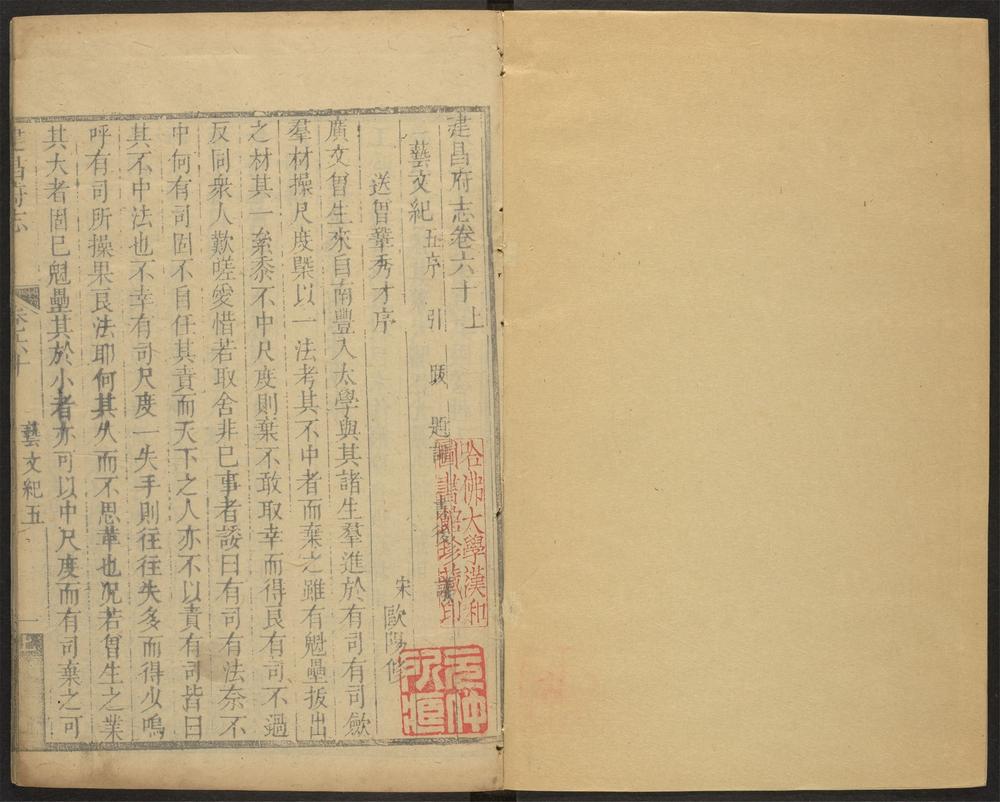 建昌府志卷六十上
藝文紀五 序 引 跋 題
送曾鞏秀才序
宋 歐陽修
廣文曾生來自南豐入太學與其諸生羣進於有司有司歛
羣材操尺度槩以一法考其不中者而棄之雖有魁壘拔出
之材其一絫黍不中尺度則棄不敢取幸而得良有司不過
反同衆人歎嗟愛惜若取舍非已事者諉曰有司有法奈不
中何有司固不自任其責而天下之人亦不以責有司皆曰
其不中法也不幸有司尺度一失手則往往失多而得少嗚
呼有司所操果良法耶何其久而不思革也况若曾生之業
其大者固已魁壘其於小者亦可以中尺度而有司棄之可
建昌府志
卷六十
藝文紀五
一
哈佛大學漢和
圖書館珍藏印